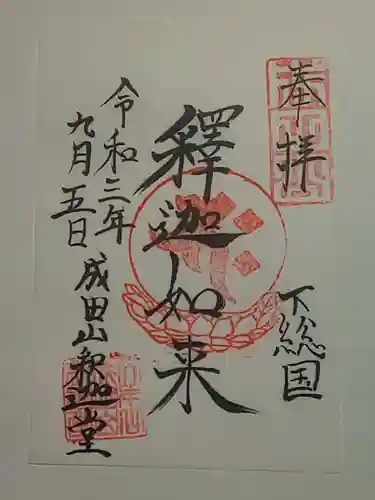 奉拝
下総国
釋迦如来
令和三年
九月五日
成田山釈迦堂